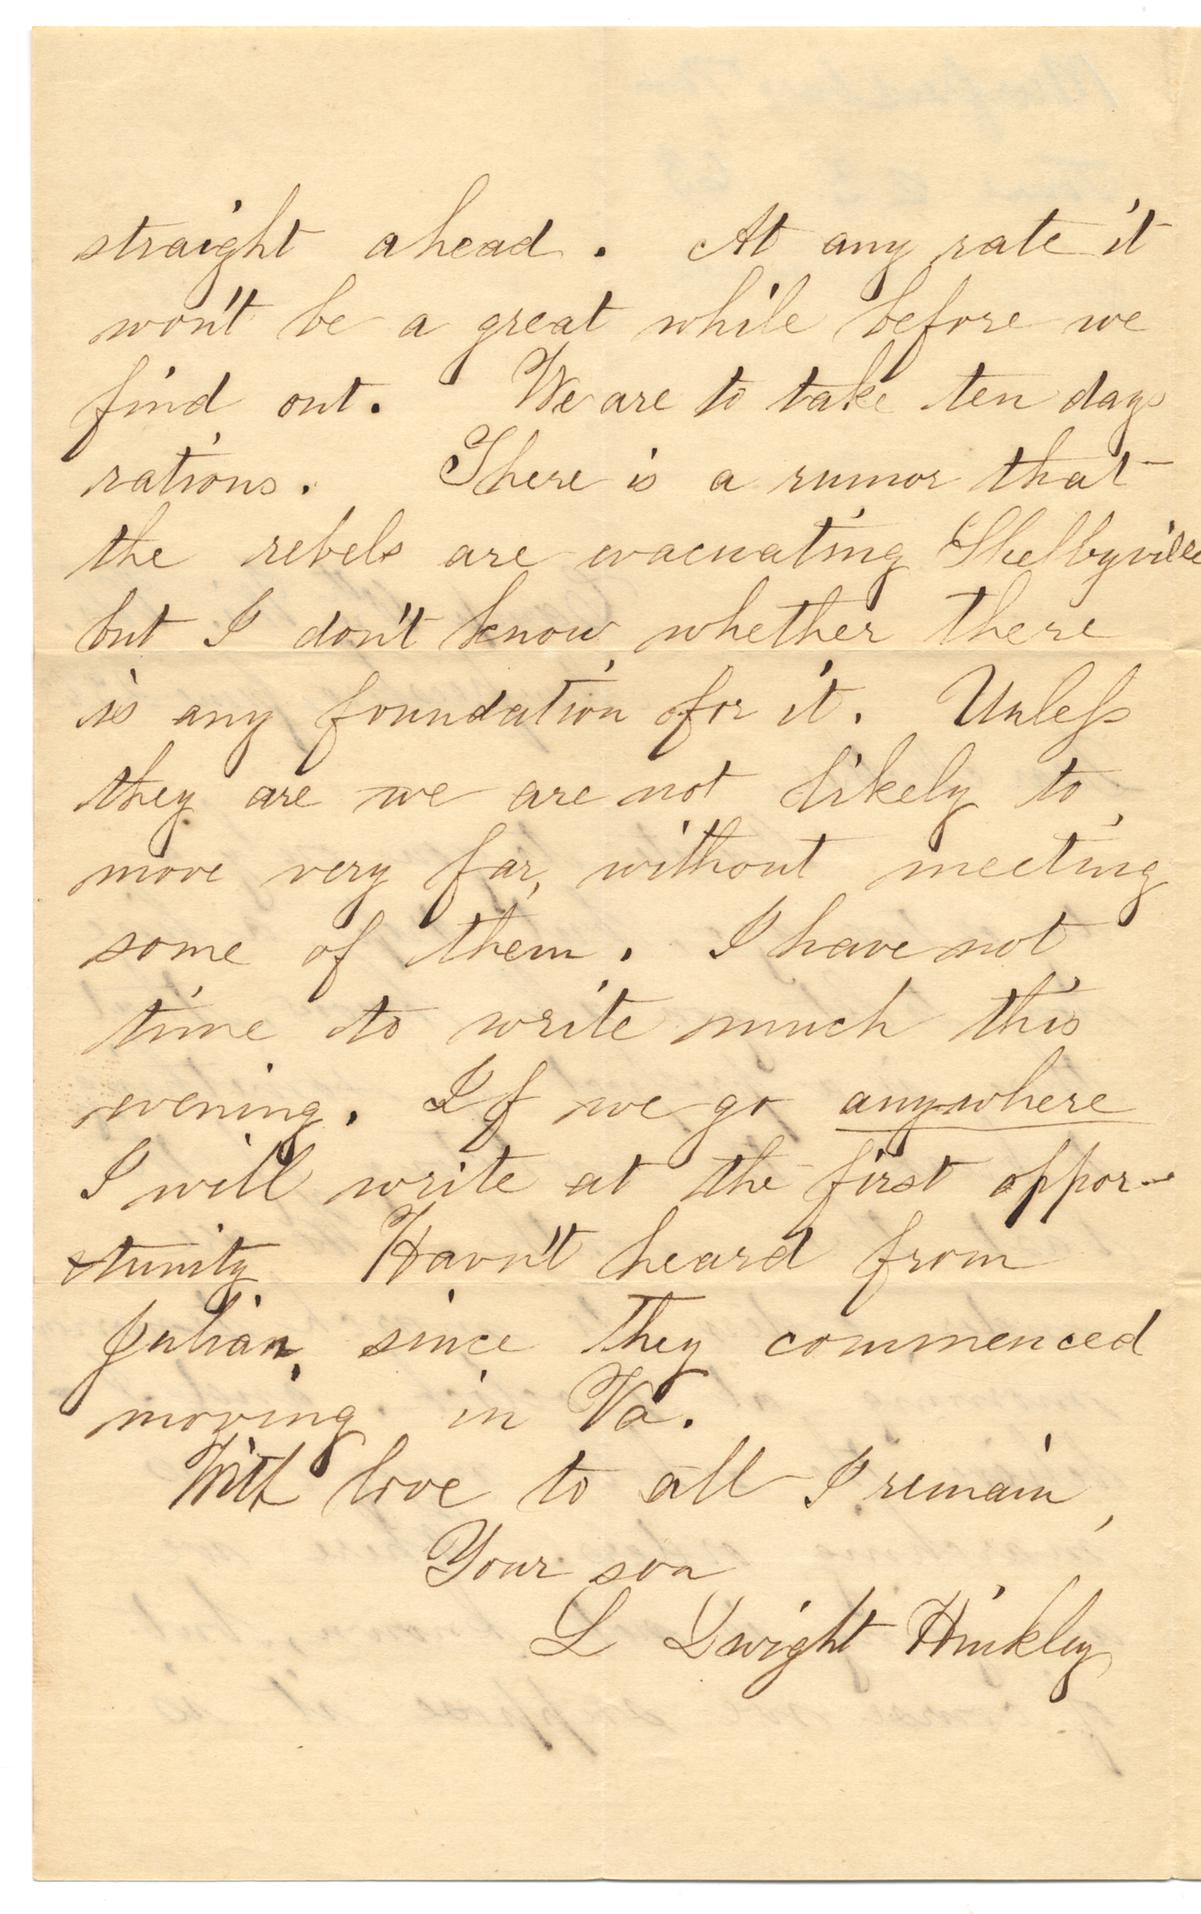 straight ahead. At any rate it
won't be a great while before we
find out. We are to take ten days
rations. There is a rumor that
the rebels are evacuating Shelbyville
but I don't know whether there
is any foundation for it. Unless
they are we are not likely to
move very far, without meeting
some of them. I have not
time to write much this
evening. If we go anywhere
I will write at the first oppor-
tunity Havn't heard from
Julian, since they commenced
moving in Va.
With love to all I remain,
Your son
L Dwight Hinkley